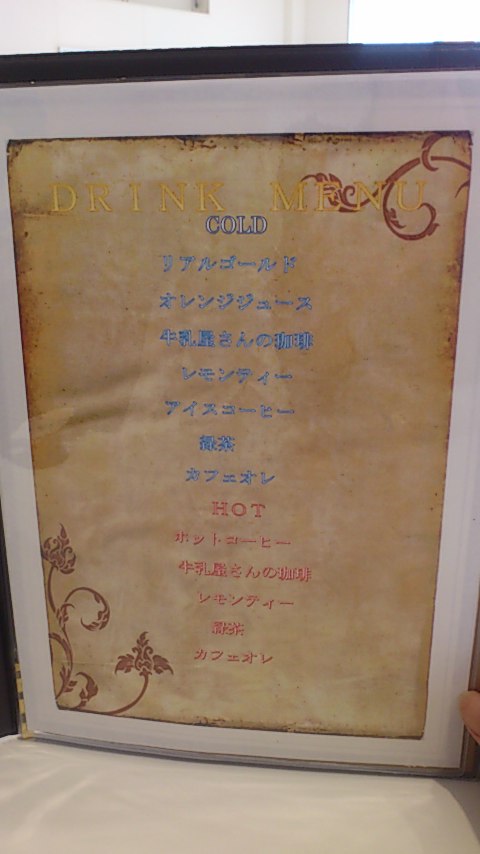 DRINK MENU
COLD
リアルゴールド
オレンジジュース
牛乳屋さんの珈琲
レモンティー
アイスコーヒー
緑茶
カフェオレ
HOT
ホットコーヒー
牛乳屋さんの珈琲
レモンティー
緑茶
カフェオレ